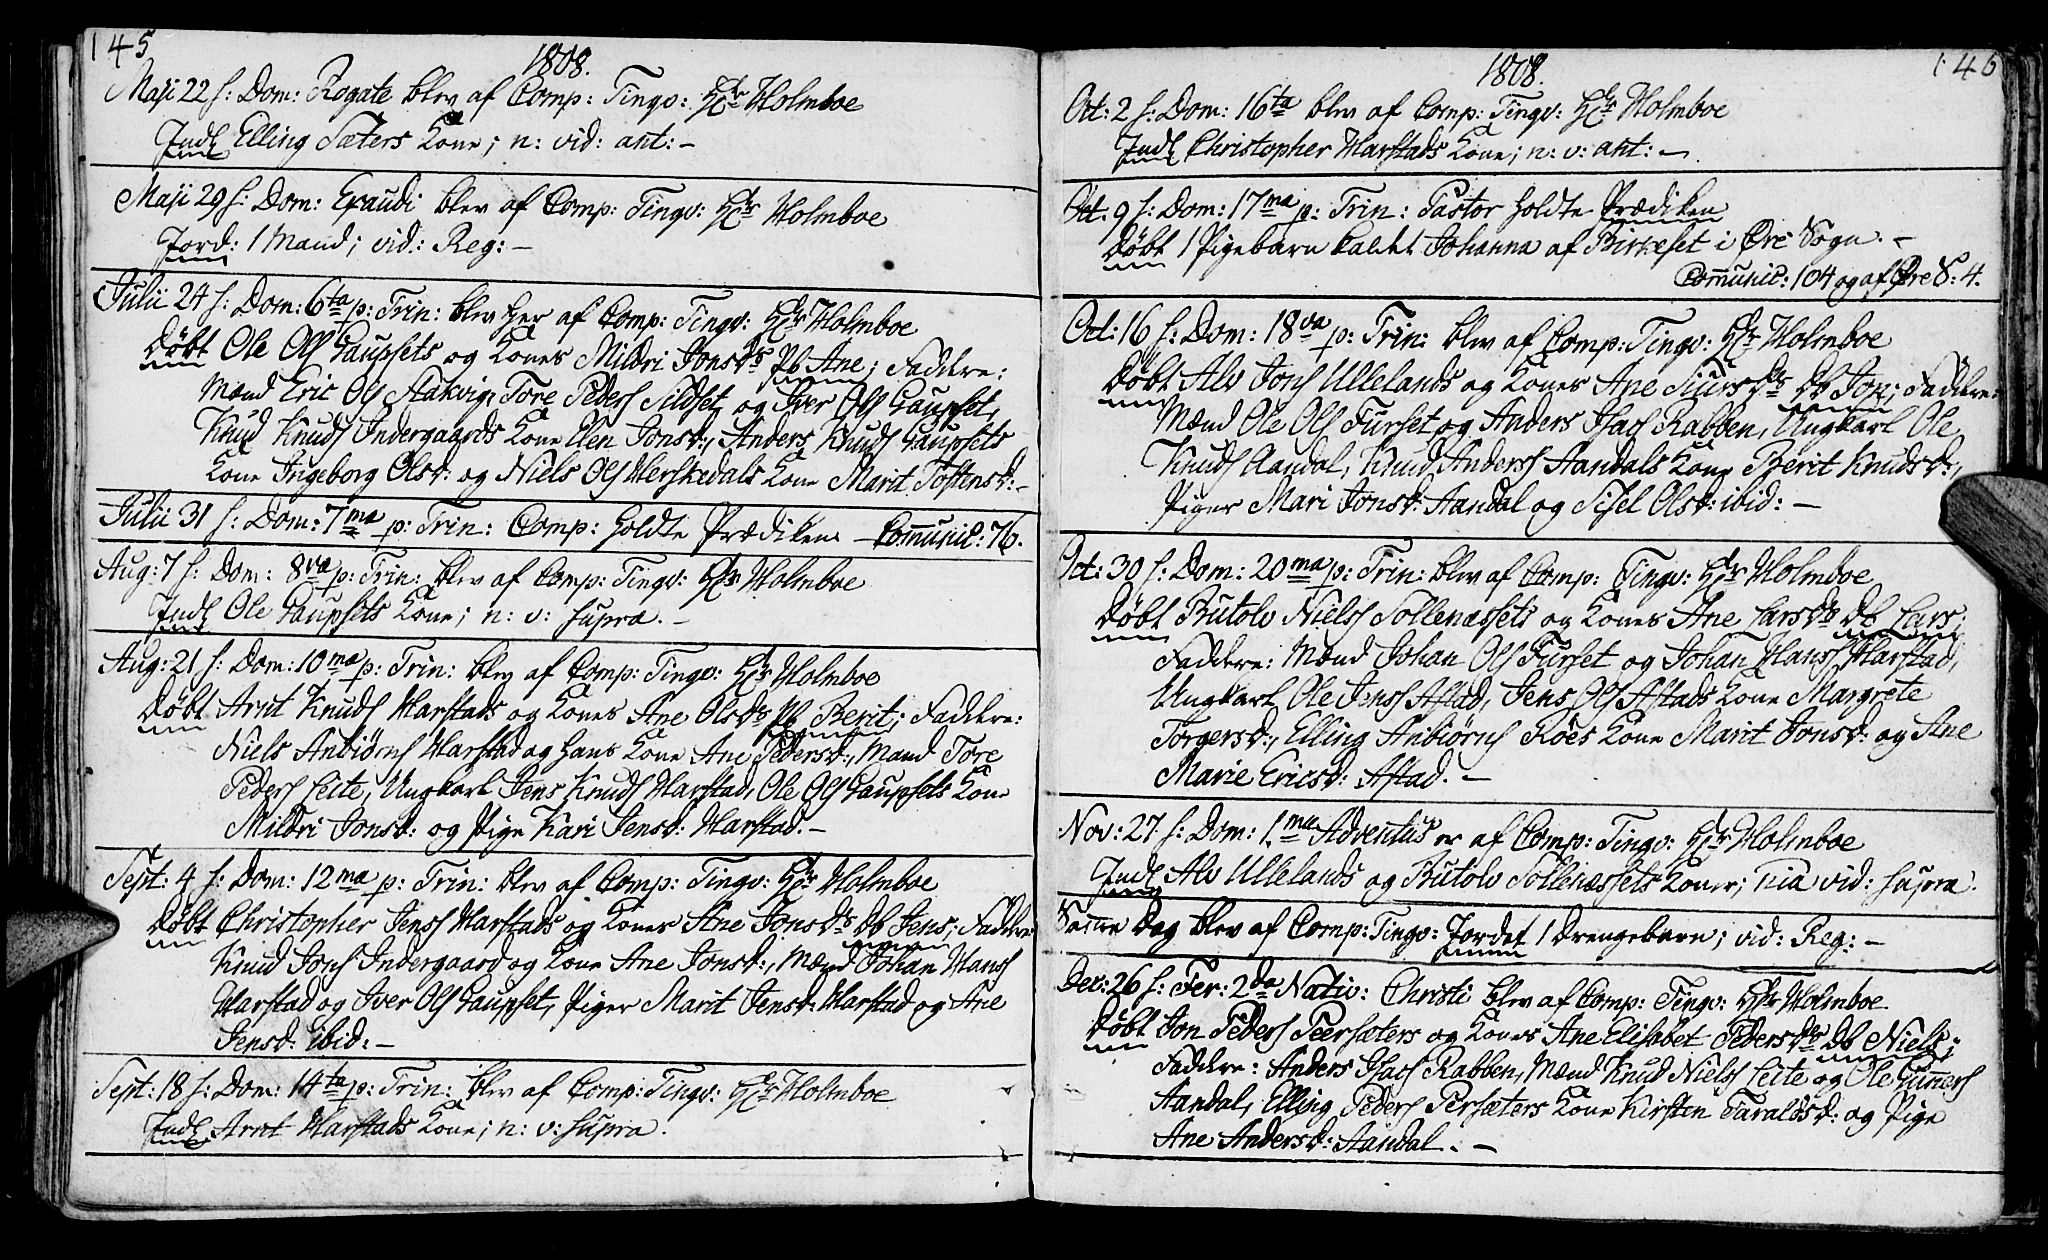 145
1808.
Maji 22 h: Dom: Rogate blev af Comp: Tingv: Hr Holmboe
Indl Elling Sæters Kone; n: vid: ant: –
Maji 29 h: Dom: Exaudi blev af Comp: Tingv: Hr Holmboe
Jord: 1 Mand; vid: Reg: –
Julii 24 h: Dom: 6ta p: Trin: blev her af Comp: Tingv: Hr Holmboe
Døbt Ole Ols Gaupsets og Kones Mildri Jonsdr Pb Ane; Faddere:
Mænd Eric Ols Stakvig, Tore Peders Sildset, og Iver Ols Gaupset,
Knud Knuds Indergaards Kone Elen Jonsd:, Anders Knuds Gaupsets
Kone Ingeborg Olsd: og Niels Ols Herskedals Kone Marit Tostensd: –
Julii 31 h: Dom: 7ma p: Trin: Comp: holdte Prædiken – Communic: 76.
Aug: 7 h: Dom: 8va p: Trin: blev af Comp: Tingv: Hr Holmboe
Indl Ole Gaupsets Kone; n: v: supra. –
Aug: 21 h: Dom: 10ma p: Trin: blev af Comp: Tingv: Hr Holmboe
Døbt Arnt Knuds Harstads og Kones Ane Olsdr Pb Berit; Faddere:
Niels Anbiörns Harstad og hans Kone Ane Pedersd:, Mand Tore
Peders Leite, Ungkarl Jens Knuds Harstad, Ole Ols Gaupsets Kone
Mildri Jonsd: og Pige Kari Jensd: Harstad. –
Sept: 4 h: Dom: 12ma p: Trin: blev af Comp: Tingv: Hr Holmboe
Døbt Christopher Jens Harstads og Kones Ane Jonsdr Db Jens; Faddere:
Knud Jons Indergaard og Kone Ane Jonsd:, Mænd Johan Hans
Harstad og Iver Ols Gaupset, Piger Marit Jensd: Harstad og Ane
Jensd: ibid: –
Sept: 18 h: Dom: 14ta p: Trin: blev af Comp: Tingv: Hr Holmboe
Indl Arnt Harstads Kone; n: v: supra.
146
1808.
Oct: 2 h: Dom: 16ta blev af Comp: Tingv: Hr Holmboe
Indl Christopher Harstads Kone; n: v: ant: –
Oct: 9 h: Dom: 17ma p: Trin: Pastor holdte Prædiken
Døbt 1 Pigebarn kaldet Johanna af Birkeset i Øre Sogn. –
Communic: 104 og af Øre S: 4.
Oct: 16 h: Dom: 18va p: Trin: blev af Comp: Tingv: Hr Holmboe
Døbt Alv Jons Ullelands og Kones Ane Siursdr Db Jon; Faddere:
Mænd Ole Ols Furset og Anders Isacs Rabben, Ungkarl Ole
Knuds Aandal, Knud Anders Aandals Kone Berit Knudsd:,
Piger Mari Jonsd: Aandal og Sisel Olsd: ibid: –
Oct: 30 h: Dom: 20ma p: Trin: blev af Comp: Tingv: Hr Holmboe
Døbt Butolv Niels Sollenæssets og Kones Ane Larsdr Db Lars;
Faddere: Mænd Johan Ols Furset og Johan Hans Harstad,
Ungkarl Ole Jens Astad, Jens Ols Astads Kone Margrete
Torgersd:, Elling Anbiörns Röes Kone Marit Jonsd: og Ane
Marie Ericsd: Astad. –
Nov: 27 h: Dom: 1ma Adventus er af Comp: Tingv: Hr Holmboe
Indl Alv Ullelands og Butolv Sollenæssets Koner; nia vid: supra.
Samme Dag blev af Comp: Tingv: Jordet 1 Drengebarn; vid: Reg: –
Dec: 26 h: Fer: 2da Nativ: Christi blev af Comp: Tingv: Hr Holmboe
Døbt Jon Peders Peersæters og Kones Ane Elisabet Pedersdr Db Niels;
Faddere: Anders Isacs Rabben, Mænd Knud Niels Leite og Ole Gunners
Aandal, Elling Peders Persæters Kone Kirsten Taraldsd: og Pige
Ane Andersd: Aandal. –